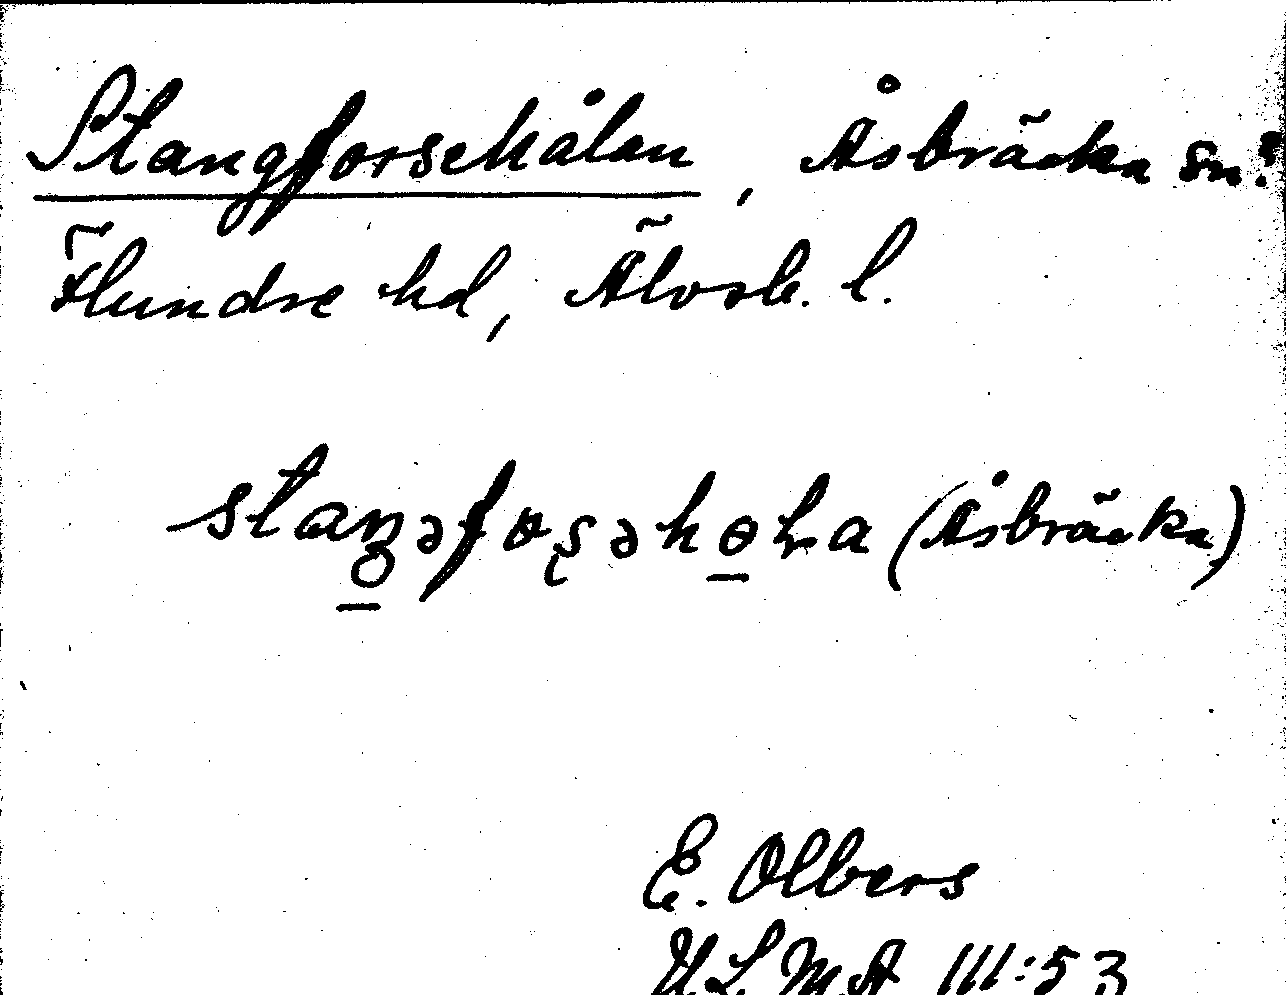 Stangforsehålan, Åsbräcka sn?
Flundre hd, Älvsb. l.
(Åsbräcka)
E. Olbers
ULMA 111:53